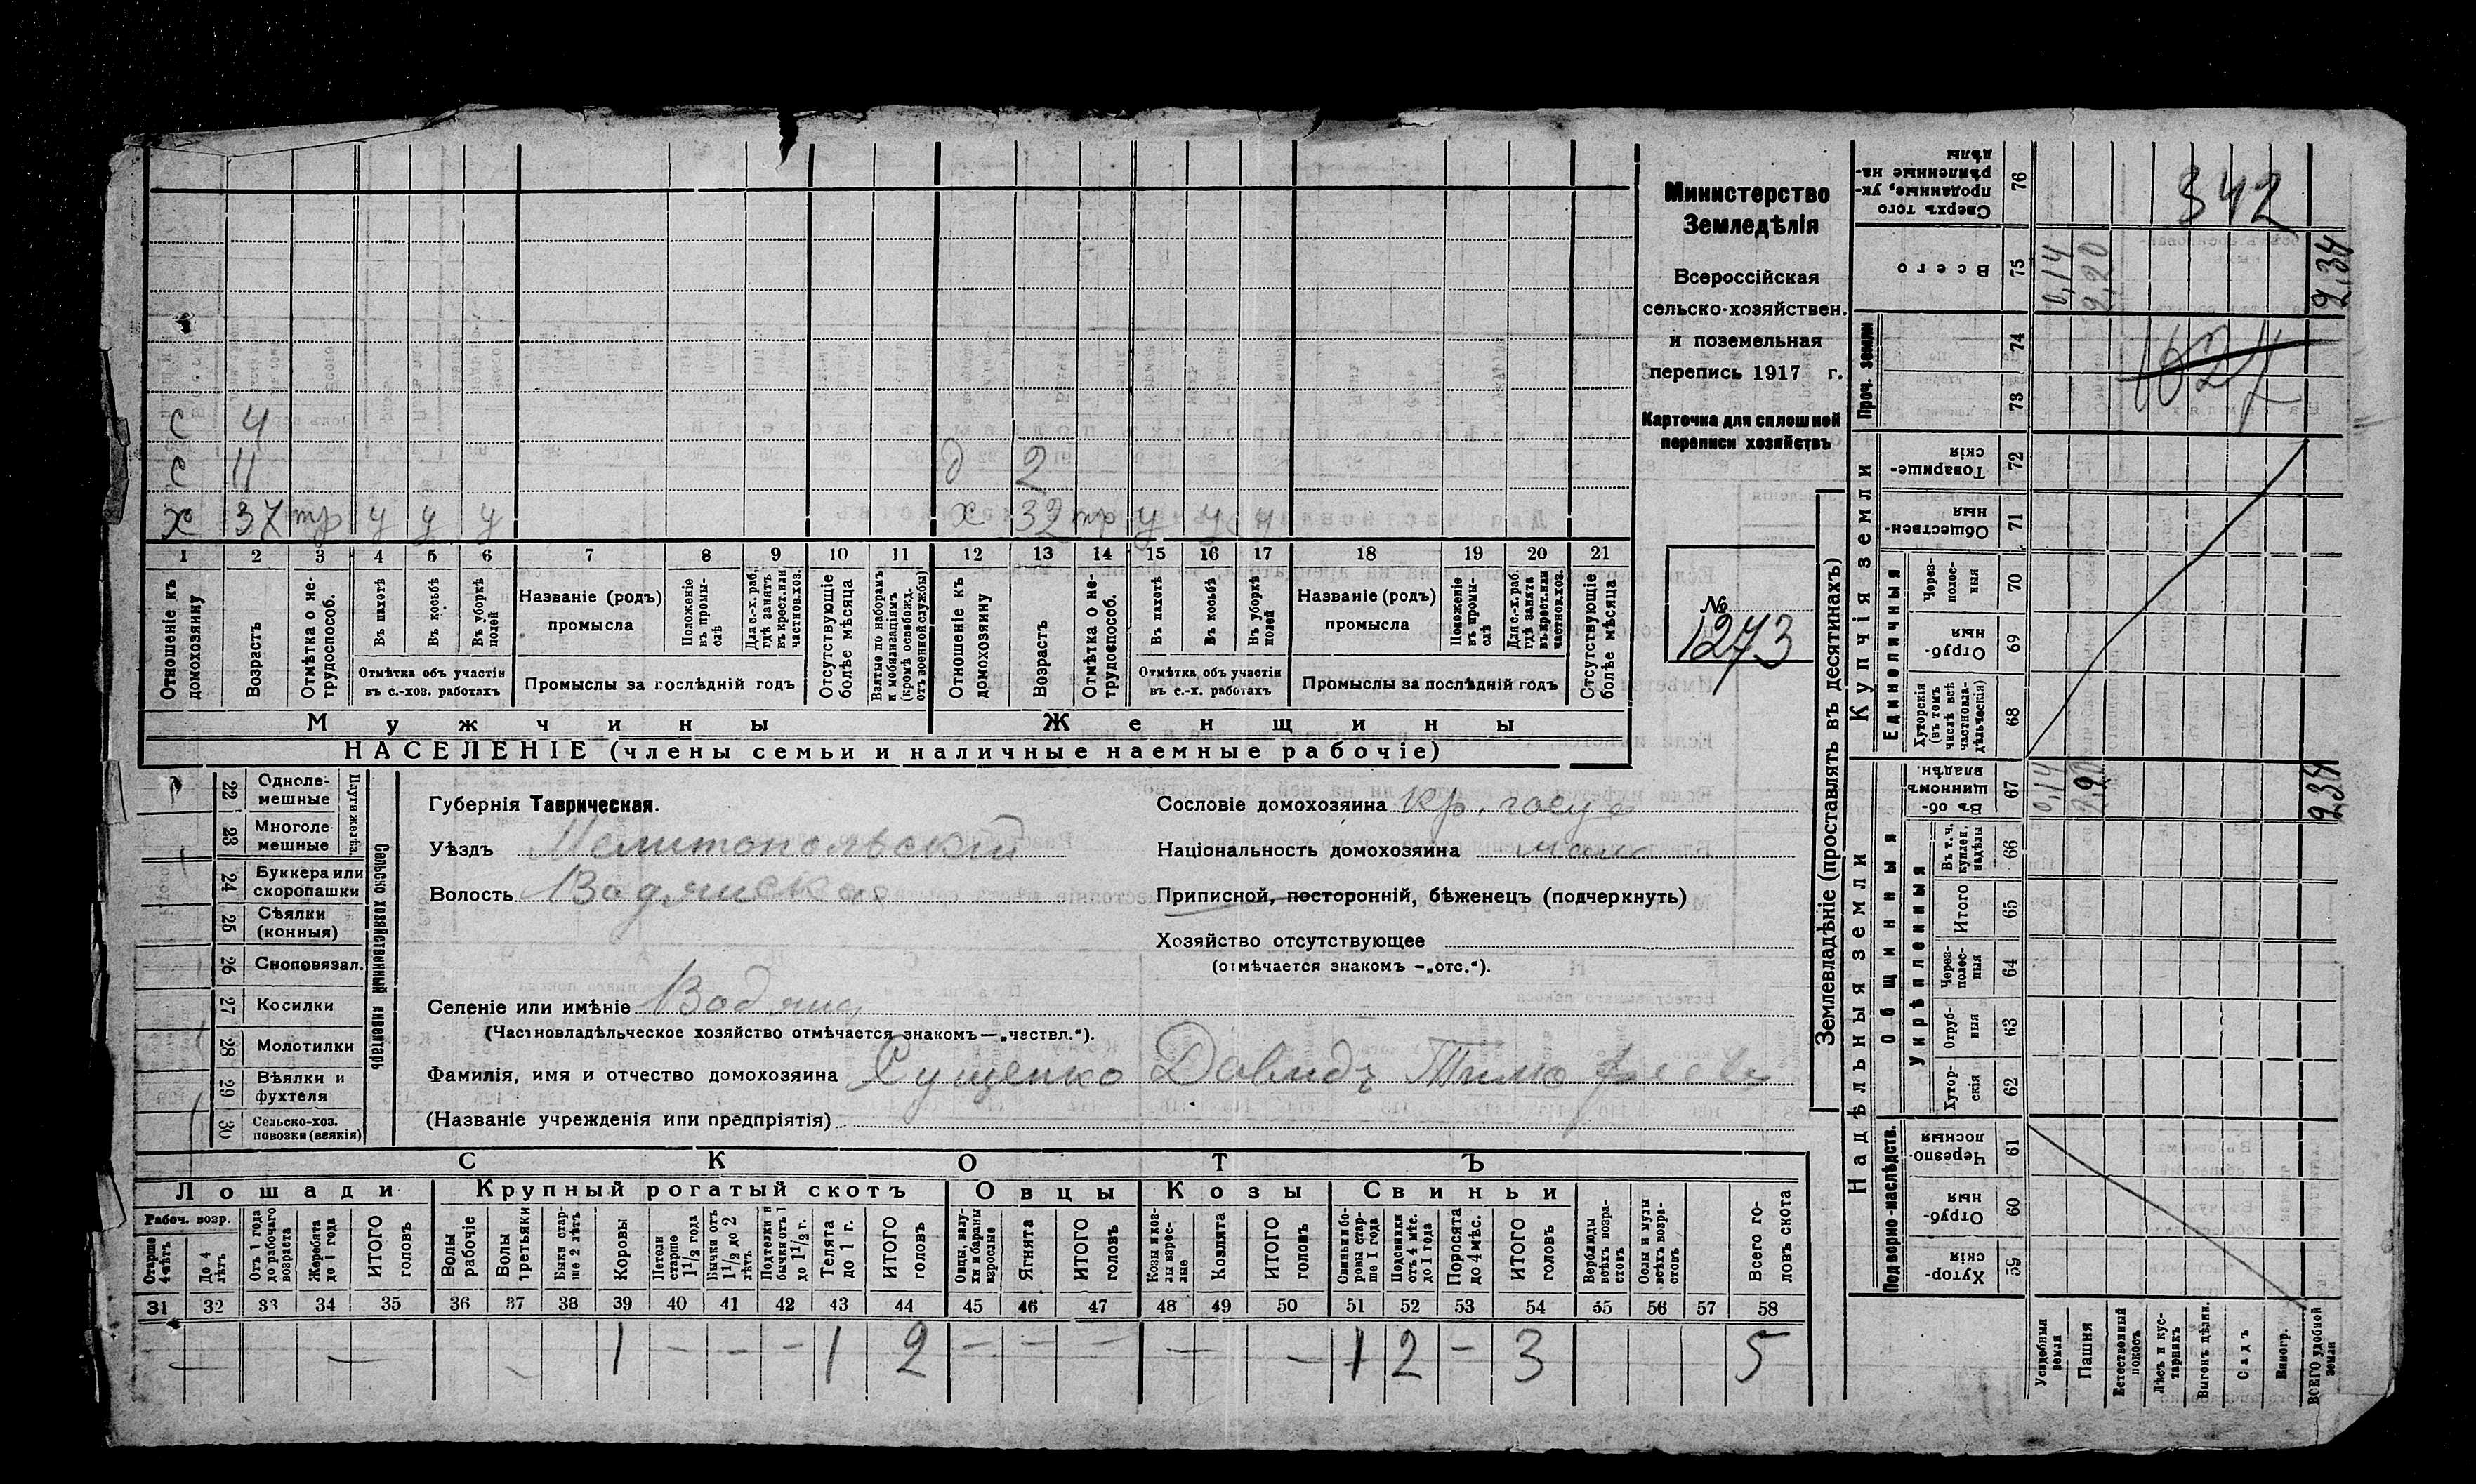 с 4
с 11 д 2
х 37 тр у у у х 32 тр у у у
1 2 3 4 5 6 7 8 9 10 11 12 13 14 15 16 17 18 19 20 21
Отношеніе къ домохозяину
Возрастъ
Отмѣтка о нетрудоспособ.
Въ пахотѣ
Въ косьбѣ
Въ уборкѣ полей
Отмѣтка объ участіи въ с.-хоз. работахъ
Названіе (родъ) промысла
Положеніе въ промыслѣ
Для с.-х. раб. гдѣ занятъ въ крест. или частнов. хоз.
Промыслы за послѣдній годъ
Отсутствующіе болѣе мѣсяца
Взятые по наборамъ и мобилизаціямъ (кромѣ освобожд. отъ военной службы)
Отношеніе къ домохозяину
Возрастъ
Отмѣтка о нетрудоспособ.
Въ пахотѣ
Въ косьбѣ
Въ уборкѣ полей
Отмѣтка объ участіи въ с.-х. работахъ
Названіе (родъ) промысла
Положеніе въ промыслѣ
Для с.-х. раб. гдѣ занята въ крест. или частнов. хоз.
Промыслы за послѣдній годъ
Отсутствующіе болѣе мѣсяца
Мужчины Женщины
НАСЕЛЕНІЕ (члены семьи и наличные наемные рабочіе)
Министерство
Земледѣлія
Всероссійская
сельско-хозяйствен.
и поземельная
перепись 1917 г.
Карточка для сплошной
переписи хозяйствъ
№
1273
22 Одноле-мешные
23 Многоле-мешные
Плуги желѣз.
24 Буккера или скоропашки
25 Сѣялки (конныя)
26 Сноповязал.
27 Косилки
28 Молотилки
29 Вѣялки и фухтеля
30 Сельско-хоз. повозки (всякія)
Сельско хозяйственный инвентарь
Губернія Таврическая.
Уѣздъ Мелитопольскій
Волость Водянская
Селеніе или имѣніе Водяное
(Частновладѣльческое хозяйство отмѣчается знакомъ—„чествл.“).
Фамилія, имя и отчество домохозяина Сущенко Давидъ Тимофеев
(Названіе учрежденія или предпріятія)
Сословіе домохозяина кр. госуд
Національность домохозяина мало
Приписной, посторонній, бѣженецъ (подчеркнуть)
Хозяйство отсутствующее
(отмѣчается знакомъ —„отс.“).
СКОТЪ
Лошади Крупный рогатый скотъ Овцы Козы Свиньи
Рабоч. возр.
Старше 4 лѣтъ
До 4 лѣтъ
Отъ 1 года до рабочаго возраста
Жеребята до 1 года
ИТОГО головъ
Волы рабочіе
Волы третьяки
Быки старше 2 лѣтъ
Коровы
Нетели старше 1 1/2 года
Бычки отъ 1 1/2 до 2 лѣтъ
Подтелки и бычки отъ 1 до 1 1/2 г.
Телята до 1 г.
ИТОГО головъ
Овцы, валухи и бараны взрослые
Ягнята
ИТОГО головъ
Козы и козлы взрослые
Козлята
ИТОГО головъ
Свиньи и боровы старше 1 года
Подсвинки отъ 4 мѣс. до 1 года
Поросята до 4 мѣс.
ИТОГО головъ
Верблюды всѣхъ возрастовъ
Ослы и мулы всѣхъ возрастовъ
Всего головъ скота
31 32 33 34 35 36 37 38 39 40 41 42 43 44 45 46 47 48 49 50 51 52 53 54 55 56 57 58
— — 1 - - - 1 2 - - - — - 1 2 - 3 5
Землевладѣніе (проставлять въ десятинахъ)
Надѣльныя земли Купчія земли Проч. земли
Подворно-наслѣдств. Общинныя Единоличныя
Укрѣпленныя
Хуторскія 59
Отрубныя 60
Черезполосныя 61
Хуторскія 62
Отрубныя 63
Черезполосныя 64
Итого 65
Въ т. ч. куплен. надѣлы 66
Въ общинномъ владѣн. 67 0,14 2,20 2,34
Хуторскія (въ томъ числѣ всѣ частновладѣльческія) 68
Отрубныя 69
Черезполосныя 70
Общественныя 71
Товарищескія 72
73
74 1627
Всего 75 0,14 2,20 2,34
Сверхъ того проданные, укрѣпленные надѣлы 76 342
Усадебныя земли
Пашня
Естественный покосъ
Лѣсъ и кустарникъ
Выгонъ цѣлин.
Садъ
Виногр.
ВСЕГО удобной земли